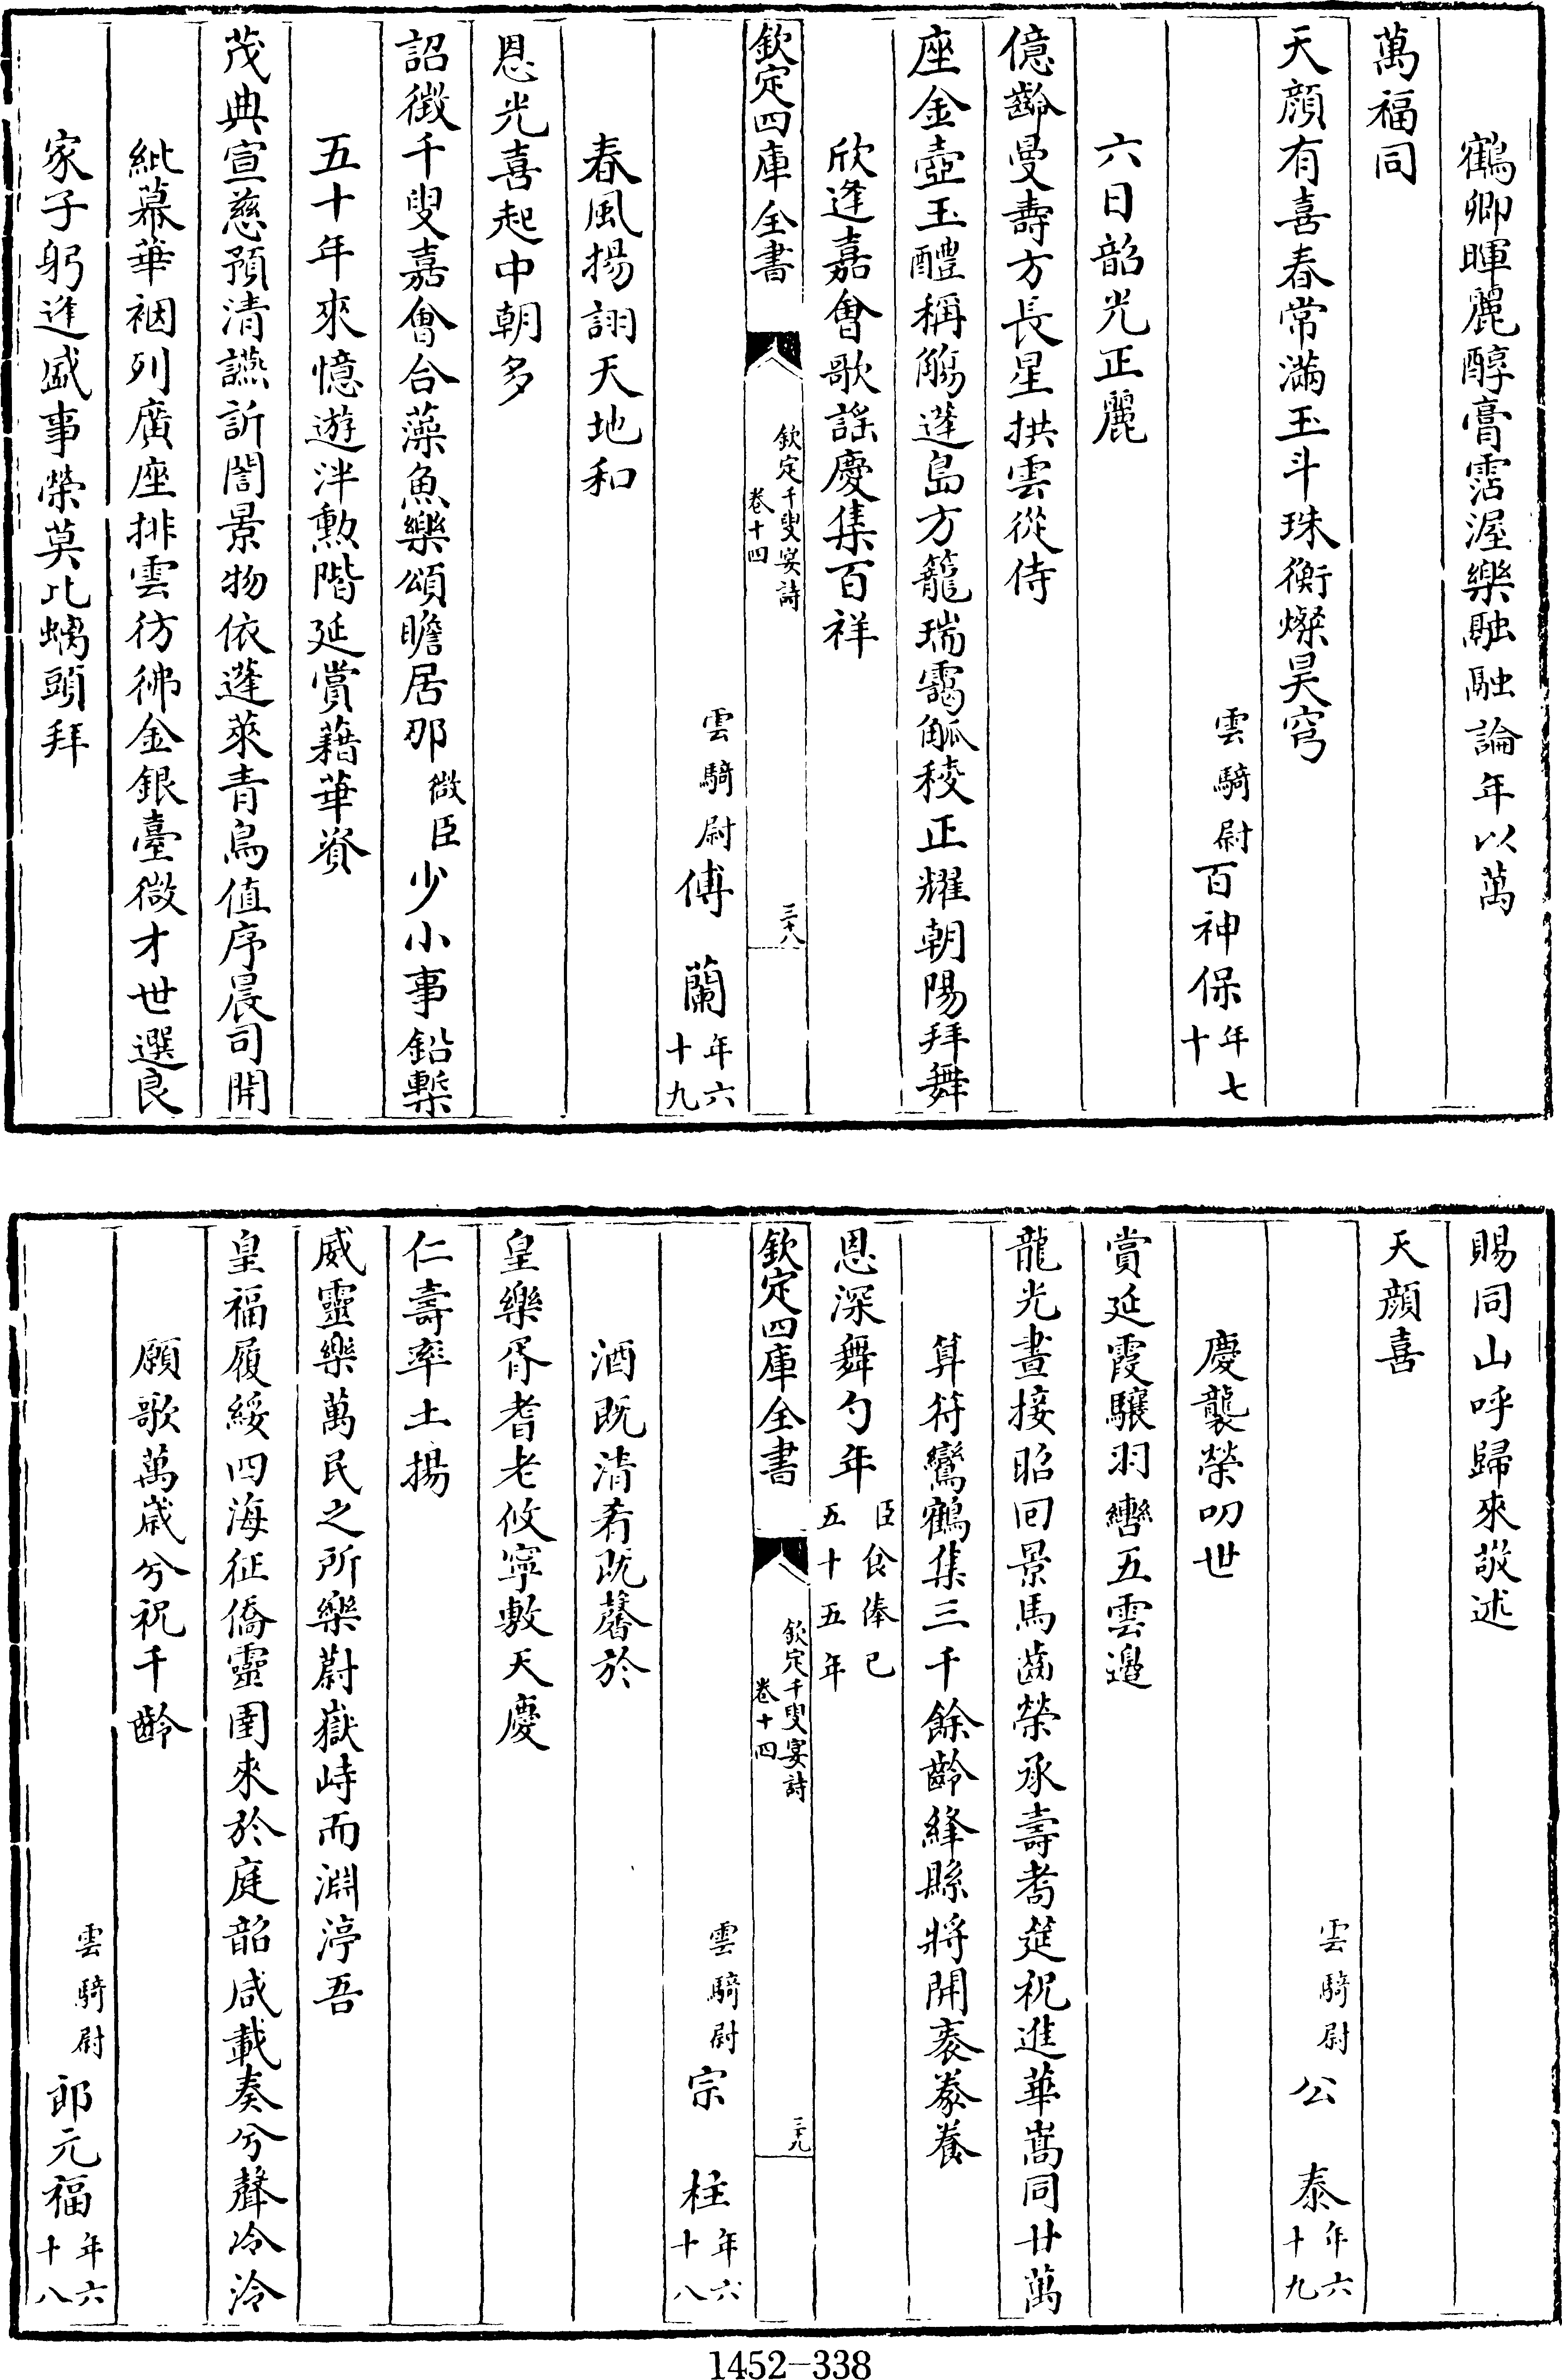 鶴卿暉麗醇膏霑渥樂融融論年以萬
萬福同
天顔有喜春常滿玉斗珠衡燦昊穹
雲騎尉百神保年七十
六日韶光正麗
億齡曼壽方長星拱雲從侍
座金壺玉醴稱觴蓬島方籠瑞靄觚稜正耀朝陽拜舞
欣逢嘉會歌謡慶集百祥
欽定四庫全書
欽定千叟宴詩
卷十四
三十八
雲騎尉傅蘭年六十九
春風揚詡天地和
恩光喜起中朝多
詔徴千叟嘉會合藻魚樂頌瞻居那微臣少小事鉛槧
五十年來憶遊泮勲階延賞藉華資
茂典宣慈預清讌訢誾景物依蓬萊青鳥值序晨司開
紕幕華裀列廣座排雲彷彿金銀臺微才世選良
家子躬逢盛事榮莫比螭頭拜
賜同山呼歸來敬述
天顔喜
雲騎尉公泰年六十九
慶襲榮叨世
賞延霞驤羽轡五雲邉
龍光晝接昭回景馬齒榮承壽耉筵祝進華嵩同廿萬
算符鸞鶴集三千餘齡絳縣將開袠豢養
恩深舞勺年臣食俸已五十五年
欽定四庫全書
欽定千叟宴詩
卷十四
三十九
雲騎尉宗柱年六十八
酒既清肴既馨於
皇樂胥耆老攸寧敷天慶
仁壽率土揚
威靈樂萬民之所樂蔚嶽峙而淵渟吾
皇福履綏四海征僑靈圉來於庭韶咸載奏兮聲冷泠
願歌萬歲兮祝千齡
雲騎尉郎元福年六十八
1452-338